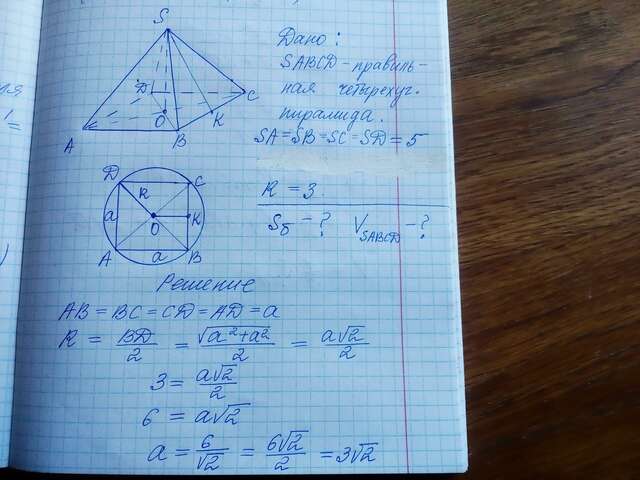 S
D
C
O
K
A
B
Дано:
SABCD - правиль-
ная четырехуг.
пирамида.
SA = SB = SC = SD = 5
R = 3.
Sб - ? V_SABCD - ?
D
C
R
a
O
K
A
a
B
Решение
AB = BC = CD = AD = a
R = BD/2 = √(a²+a²)/2 = a√2/2
3 = a√2/2
6 = a√2
a = 6/√2 = 6√2/2 = 3√2